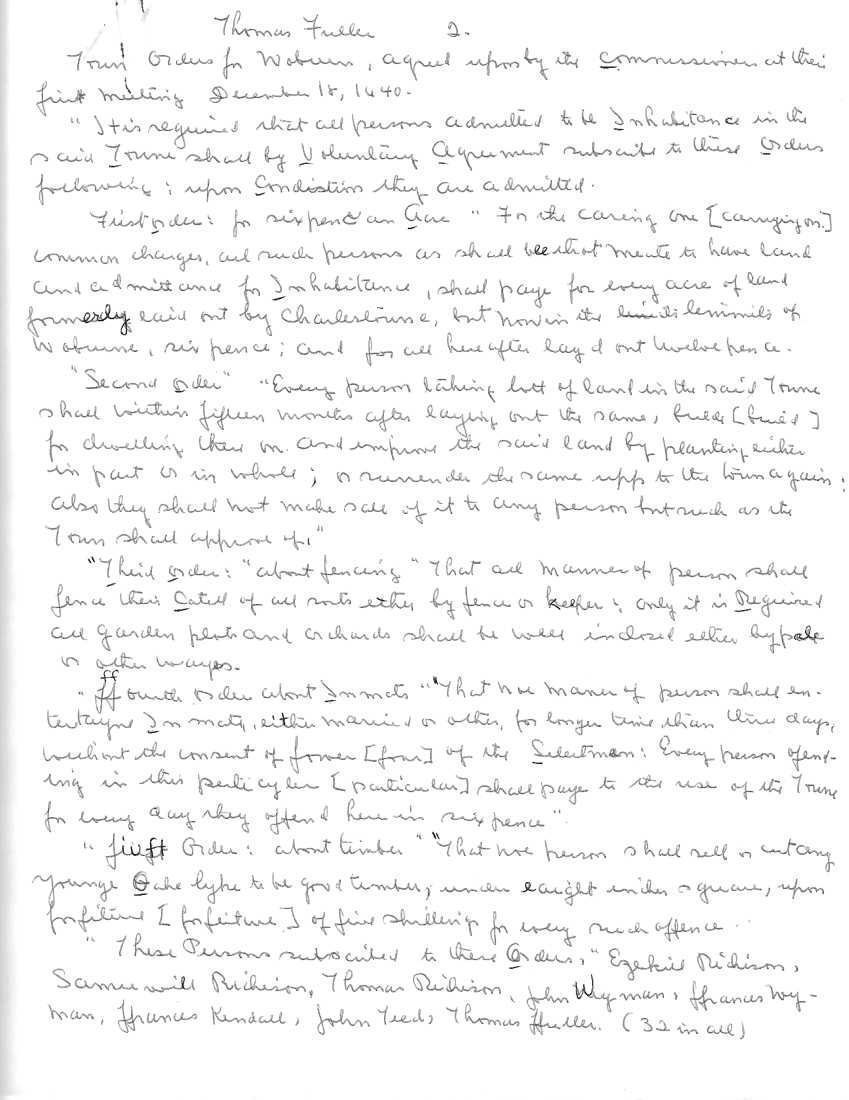 Thomas Fuller 2.
Town Orders for Woburn, agreed upon by the Commissioners at their
first meeting December 18, 1640.
"It is required that all persons admitted to be Inhabitance in the
said Towne shall by Voluntary Agreement subscribe to these Orders
following; upon Condistion they are admitted.
First order: for sixpence an Acre "For the caring one [carrying on]
common charges, all such persons as shall bee that meante to have land
and admittance for Inhabitance, shall paye for every acre of land
formerly laid out by Charlestowne, but now in the limmits of
Woburne, six pence; and for all hereafter layd out twelve pence.
"Second order" "Every person taking lott of land in the said Towne
shall within fifteen months after laying out the same, builde [build]
for dwelling there on and improve the said land by planting either
in part or in whole; or surrender the same upp to the towne again:
also they shall not make sale of it to any person but such as the
Town shall approve of."
"Third order: "about fencing" That all manner of person shall
fence their Catell of all sorts either by fence or keeper: only it is Required
all garden plots and orchards shall be well inclosed either by pale
or other wayes.
"ffourth order about Inmats" "That noe maner of person shall en-
tertayne Inmate, either married or other, for longer time than three days,
without the consent of fower [four] of the Selectmen: Every person ofend-
ing in this perticyler [particular] shall paye to the use of the Towne
for every day they offend here in six pence".
"fiuft Order: about timber" "That noe person shall sell or cut any
younge Oake lyke to be good timber, under eaight inches square, upon
forfiture [forfeiture] of five shillings for every such offence.
"These Persons subscribed to these Orders," Ezekiel Richison,
Samuwill Richison, Thomas Richison, John Wyman, ffrances Wy-
man, ffrances Kendall, John Teed, Thomas ffuller. (32 in all)